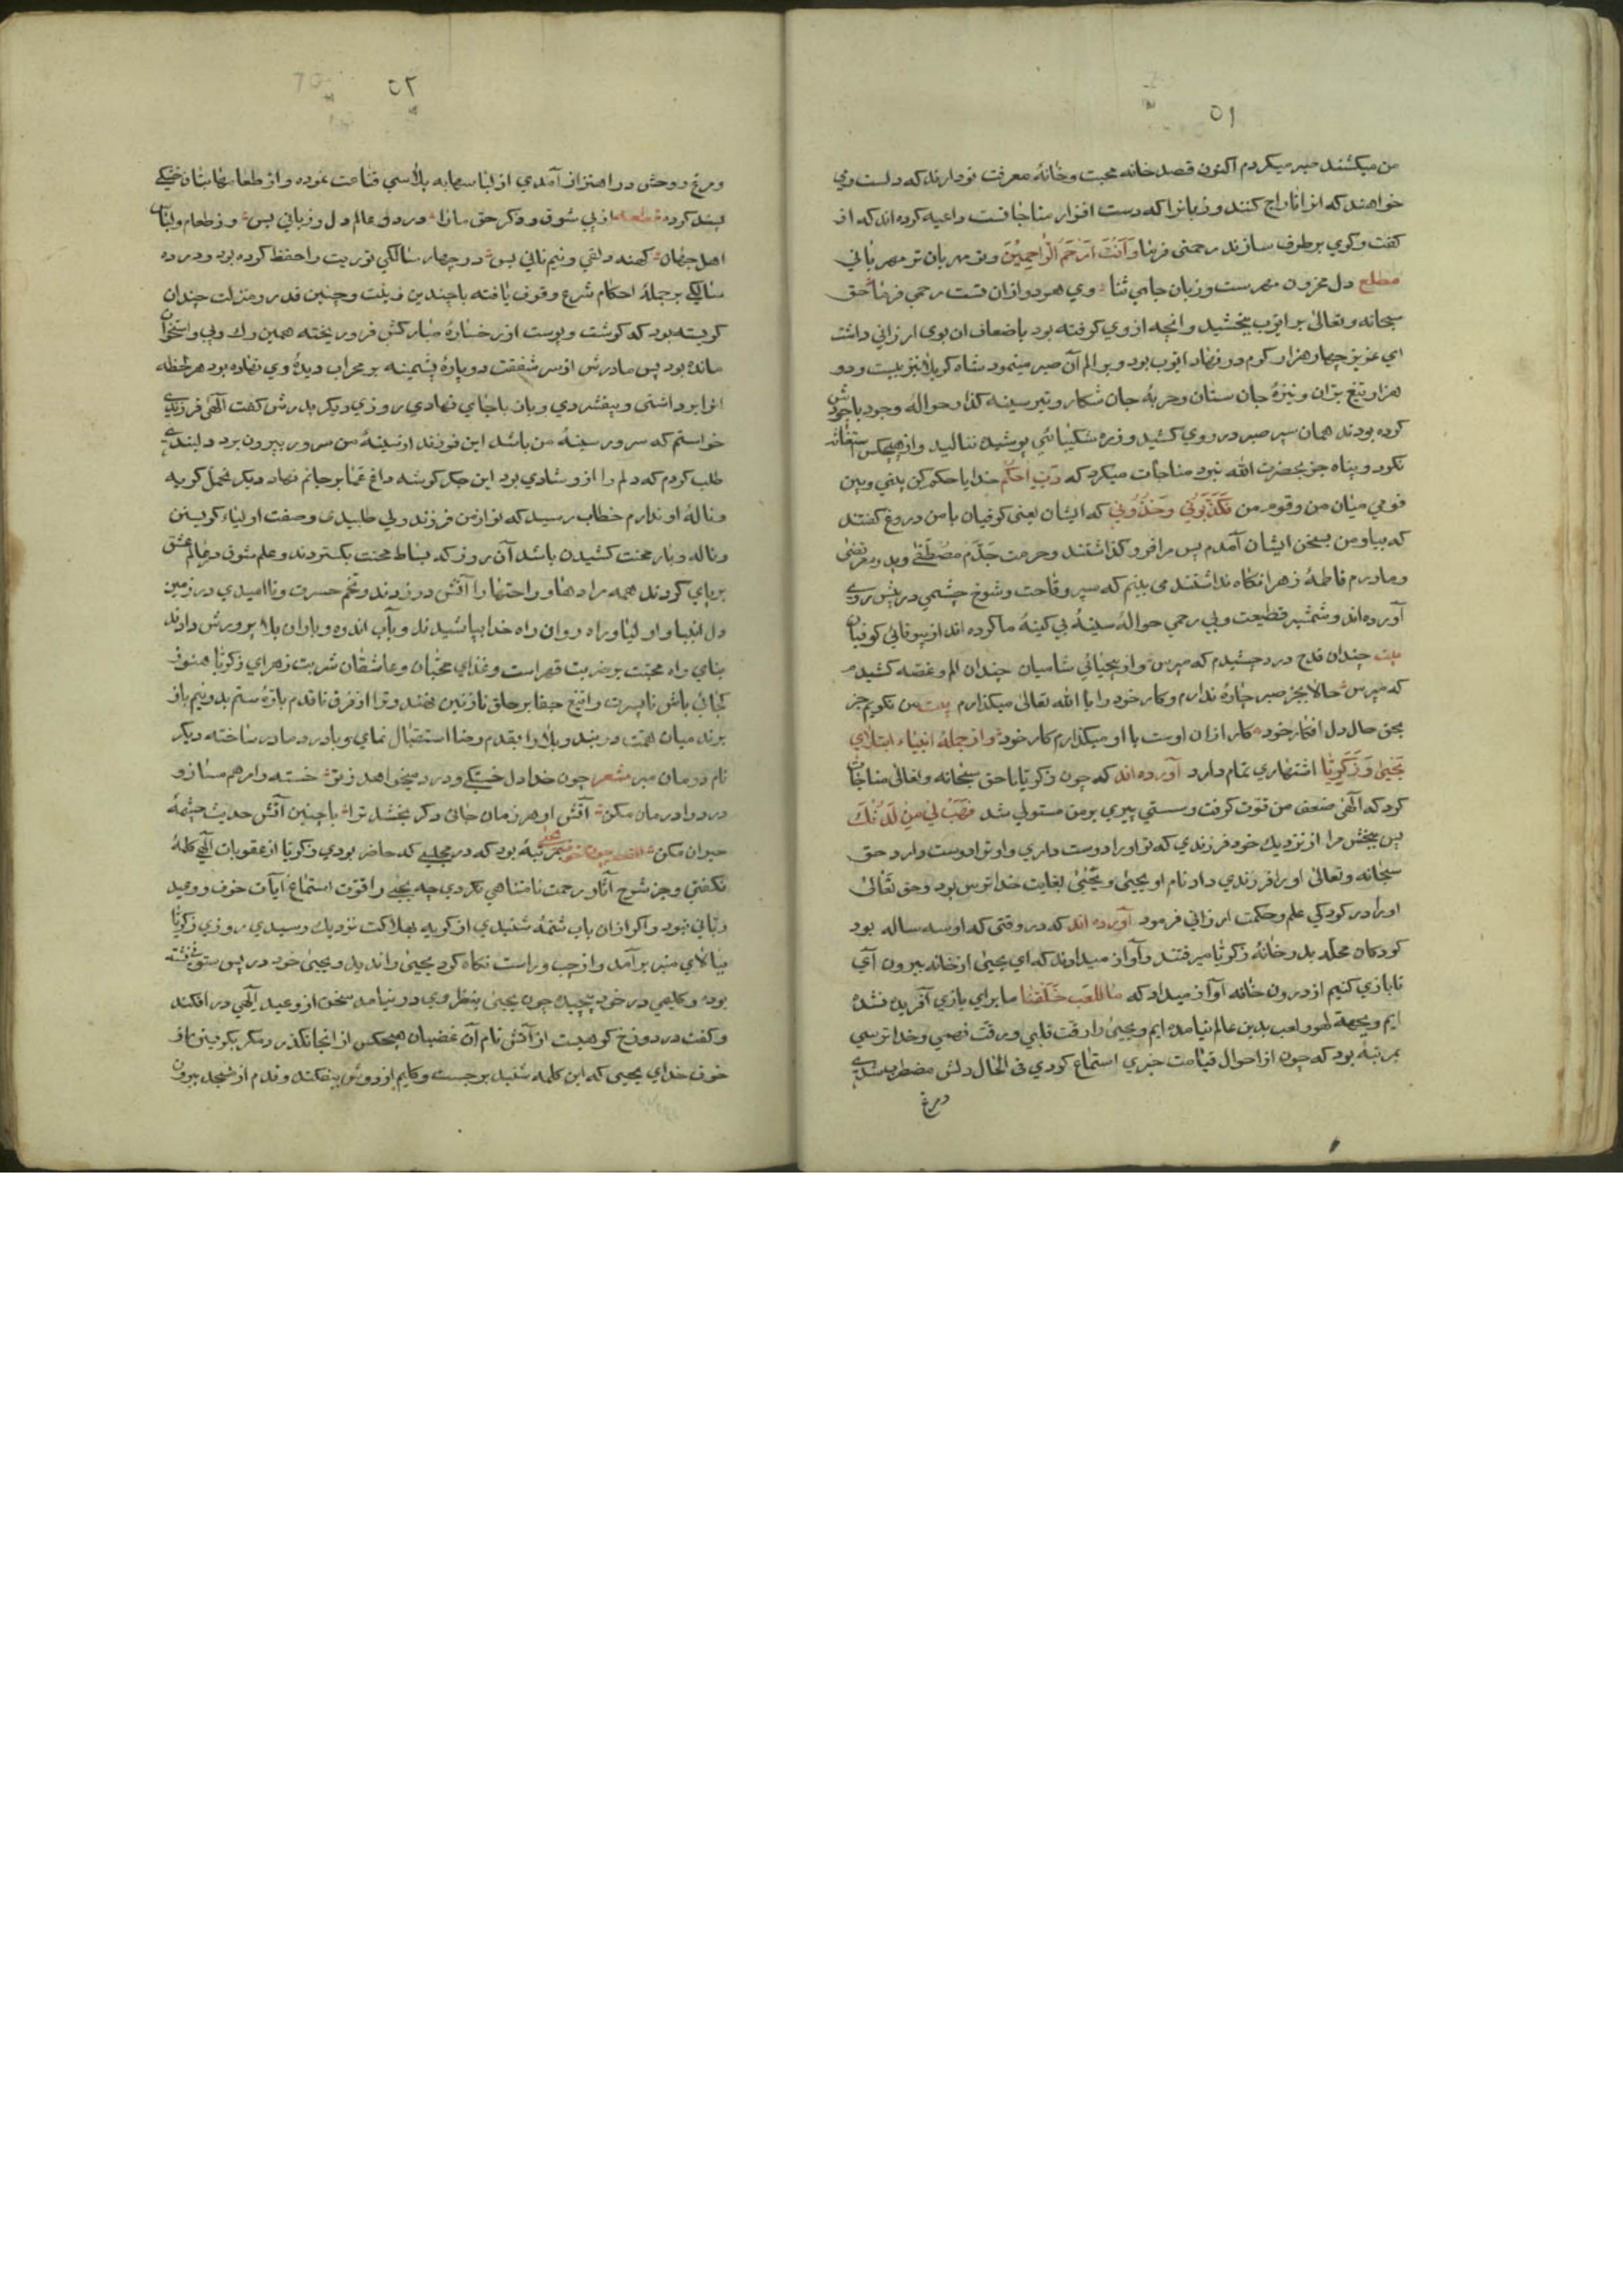 ۵۱
من میکشند صبر میکردم اکنون قصد خانه محبت و خانهٔ معرفت تو دارند که دلست و می
خواهند که انرا تاراج کنند و زبانرا که دست افزار مناجاتست داعیه کرده اند که از
کفت وکوی برطرف سازند رحمتی فرما وَاَنْتَ اَرْحَمُ الرَّاحِمِیْنَ و تو مهربان تر مهربانی
مطلع دل مخزون مهرست و زبان جای ثنا وی هر دو ازان تست رحمی فرما حق
سبحانه وتعالی بر ایوب ببخشید و انچه از وی کرفته بود باضعاف ان بوی ارزانی داشت
ای عزیز چهار هزار کرم در نهاد ایوب بود و بر الم آن صبر مینمود شاه کربلا نیز بیست و دو
هزار تیغ بران و نیزهٔ جان ستان و حربهٔ جان شکار و تیر سینه کذار حوالهٔ وجود باجودش
کرده بودند همان سپر صبر در روی کشید و زره شکیبائی پوشیده ننالید و از هیچکس استغاثه
نکرد و پناه جز بحضرت الله نبرد مناجات میکرد که رَبِّ احکُم خدایا حکم کن بینی وبین
قومی میان من و قوم من فکَذَّبُونی وَخَذَلُونی که ایشان یعنی کوفیان با من دروغ کفتند
که بیا و من بسخن ایشان آمدم پس مرا فرو کذاشتند و حرمت جدّم مصطفی و پدرم مرتضی
و مادرم فاطمهٔ زهرا نکاه نداشتند می بینم که سپر وقاحت و شوخ چشمی در پیش روی
آورده اند و شمشیر قطیعت و بی رحمی حوالهٔ سینهٔ بی کینهٔ ما کرده اند از بیوفائی کوفیان
بیت چندان قدح درد چشیدم که مپرس و از بیحیائی شامیان چندان الم و غصه کشیدم
که مپرس حالا بجز صبر چارهٔ ندارم و کار خود را با الله تعالی میکذارم بیت من نکویم جز
بحق حال دل افکار خود کار ازان اوست با او میکذارم کار خود و از جملهٔ انبیاء ابتلای
یَحیی وَ زَکَرِیّا اشتهاری تمام دارد آورده اند که چون زکریا با حق سبحانه وتعالی مناجات
کرد که الهی ضعف من قوت کرفت و سستی پیری بر من مستولی شد فَهَبْ لی مِنْ لَدُنْكَ
پس ببخش مرا از نزدیك خود فرزندی که تو او را دوست داری و او ترا دوست دارد حق
سبحانه وتعالی او را فرزندی داد نام او یحیی و یحیی بغایت خداترس بود و حق تعالی
او را در کودکی علم و حکمت ارزانی فرمود آورده اند که در وقتی که او سه ساله بود
کودکان محله بدر خانهٔ زکریا میرفتند و آواز میدادند که ای یحیی از خانه بیرون آی
تا بازی کنیم از درون خانه آواز میداد که ما للعب خَلَقَنا ما برای بازی آفریده نشده
ایم و بجهة لهو و لعب بدین عالم نیامده ایم و یحیی را رقت قلبی و رقت فهمی و خداترسی
بمرتبهٔ بود که چون از احوال قیامت خبری استماع کردی فی الحال دلش مضطرب شدی
ومرغ
۵۲
ومرغ روحش در اهتزاز آمدی از لباسها به پلاسی قناعت نموده و از طعامها بنان خشکی
پسند کرده از پی شوق و ذکر حق مارا در دو عالم دل و زبانی بس وز طعام ولباس
اهل جهان کهنه دلقی و نیم نانی بس در چهار سالکی توریت را حفظ کرده بود و در ده
سالکی بر جملهٔ احکام شرع وقوف یافته با چندین زینت و چنین قدر و منزلت چندان
کریسته بود که کوشت و پوست از رخسارهٔ مبارکش فرو ریخته همین رك و پی و استخوان
مانده بود پس مادرش از سر شفقت دو پارهٔ پشمینه بر محراب دیدهٔ وی نهاده بود هر لحظه
انرا برداشتی و بیفشردی و باز بجای نهادی روزی دیکر پدرش کفت الهی فرزندی
خواستم که سرور سینهٔ من باشد این فرزند از سینهٔ من سرور بیرون برد دلبندی
طلب کردم که دلم را ازو شادی بود این جکر کوشه داغ غمها بر جانم نهاد دیکر تحمل کریه
و نالهٔ او ندارم خطاب رسید که تو از من فرزند ولی طلبیدی و صفت اولیاء کریستن
و ناله و بار محنت کشیدن باشد آن روز که بساط محنت بکستردند و علم شوق در عالم عشق
بر پای کردند همه مرادها و راحتها را آتش در زدند و تخم حسرت و ناامیدی در زمین
دل انبیا و اولیا و راه روان راه خدا بپاشیدند و بآب اندوه و باران بلا پرورش دادند
بنای راه محبت بر ضربت قهر است و غذای محبان و عاشقان شربت زهر ای زکریا هنوز
کجائی باش تا پسرت را تیغ جفا بر حلق نازنین نهند و ترا از فرق تا قدم باره ستم بدو نیم باز
برند میان همت در بند و بلا را بقدم رضا استقبال نمای و با درد ما در ساخته دیکر
نام درمان مبر شعر چون خدا دل خستکی و درد میخواهد ز تو خسته را مرهم مساز و
درد را درمان مکن آتش او هر زمان جانی دکر بخشد ترا با چنین آتش حدیث چشمهٔ
حیوان مکن القصه چون خوف یحیی بمرتبهٔ بود که در مجلسی که حاضر بودی زکریا از عقوبات الهی کلمهٔ
نکفتی و جز شرح آثار رحمت نامتناهی نکردی چه یحیی را قوت استماع آیات خوف و وعید
ربانی نبود و اکر ازان باب شمهٔ شنیدی از کریه بهلاکت نزدیك رسیدی روزی زکریا
ببالای منبر برآمد و از چپ و راست نکاه کرد یحیی را ندید و یحیی خود در پس ستون نشسته
بود و کلیمی در خود پیچیده چون یحیی بنظر وی در نیامد سخن از وعید الهی در افکند
و کفت در دوزخ کوهیست از آتش نام آن غضبان هیچکس از انجا نکذرد مکر بکریستن از
خوف خدای یحیی که این کلمه شنید برجست و کلیم از دوش بیفکند و قدم از مسجد بیرون